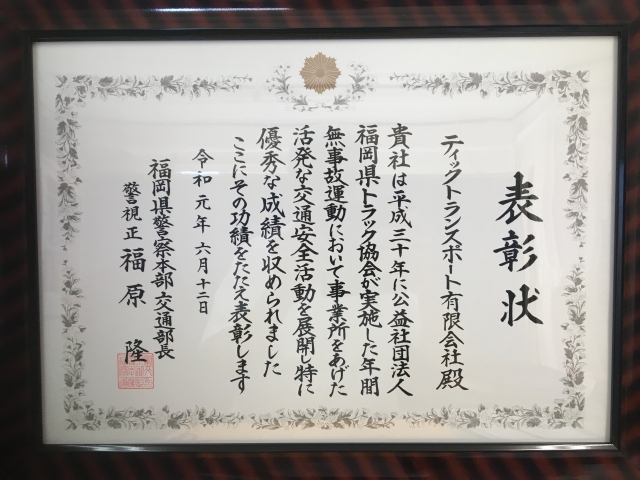 表彰状
ティックトランスポート有限会社殿
貴社は平成三十年に公益社団法人
福岡県トラック協会が実施した年間
無事故運動において事業所をあげた
活発な交通安全活動を展開し特に
優秀な成績を収められました
ここにその功績をたたえ表彰します
令和元年六月十二日
福岡県警察本部交通部長
警視正 福原 隆